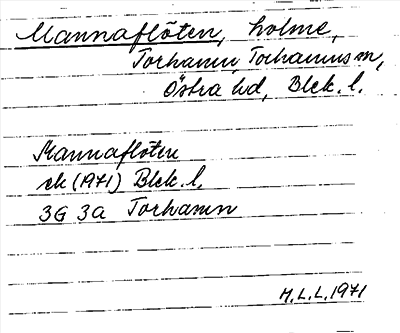 Mannaflöten, holme,
Torhamn, Torhamns sn,
Östra hd, Blek. l.
Mannaflöten
ek (1971) Blek. l.
3G 3a Torhamn
M.L.L. 1971